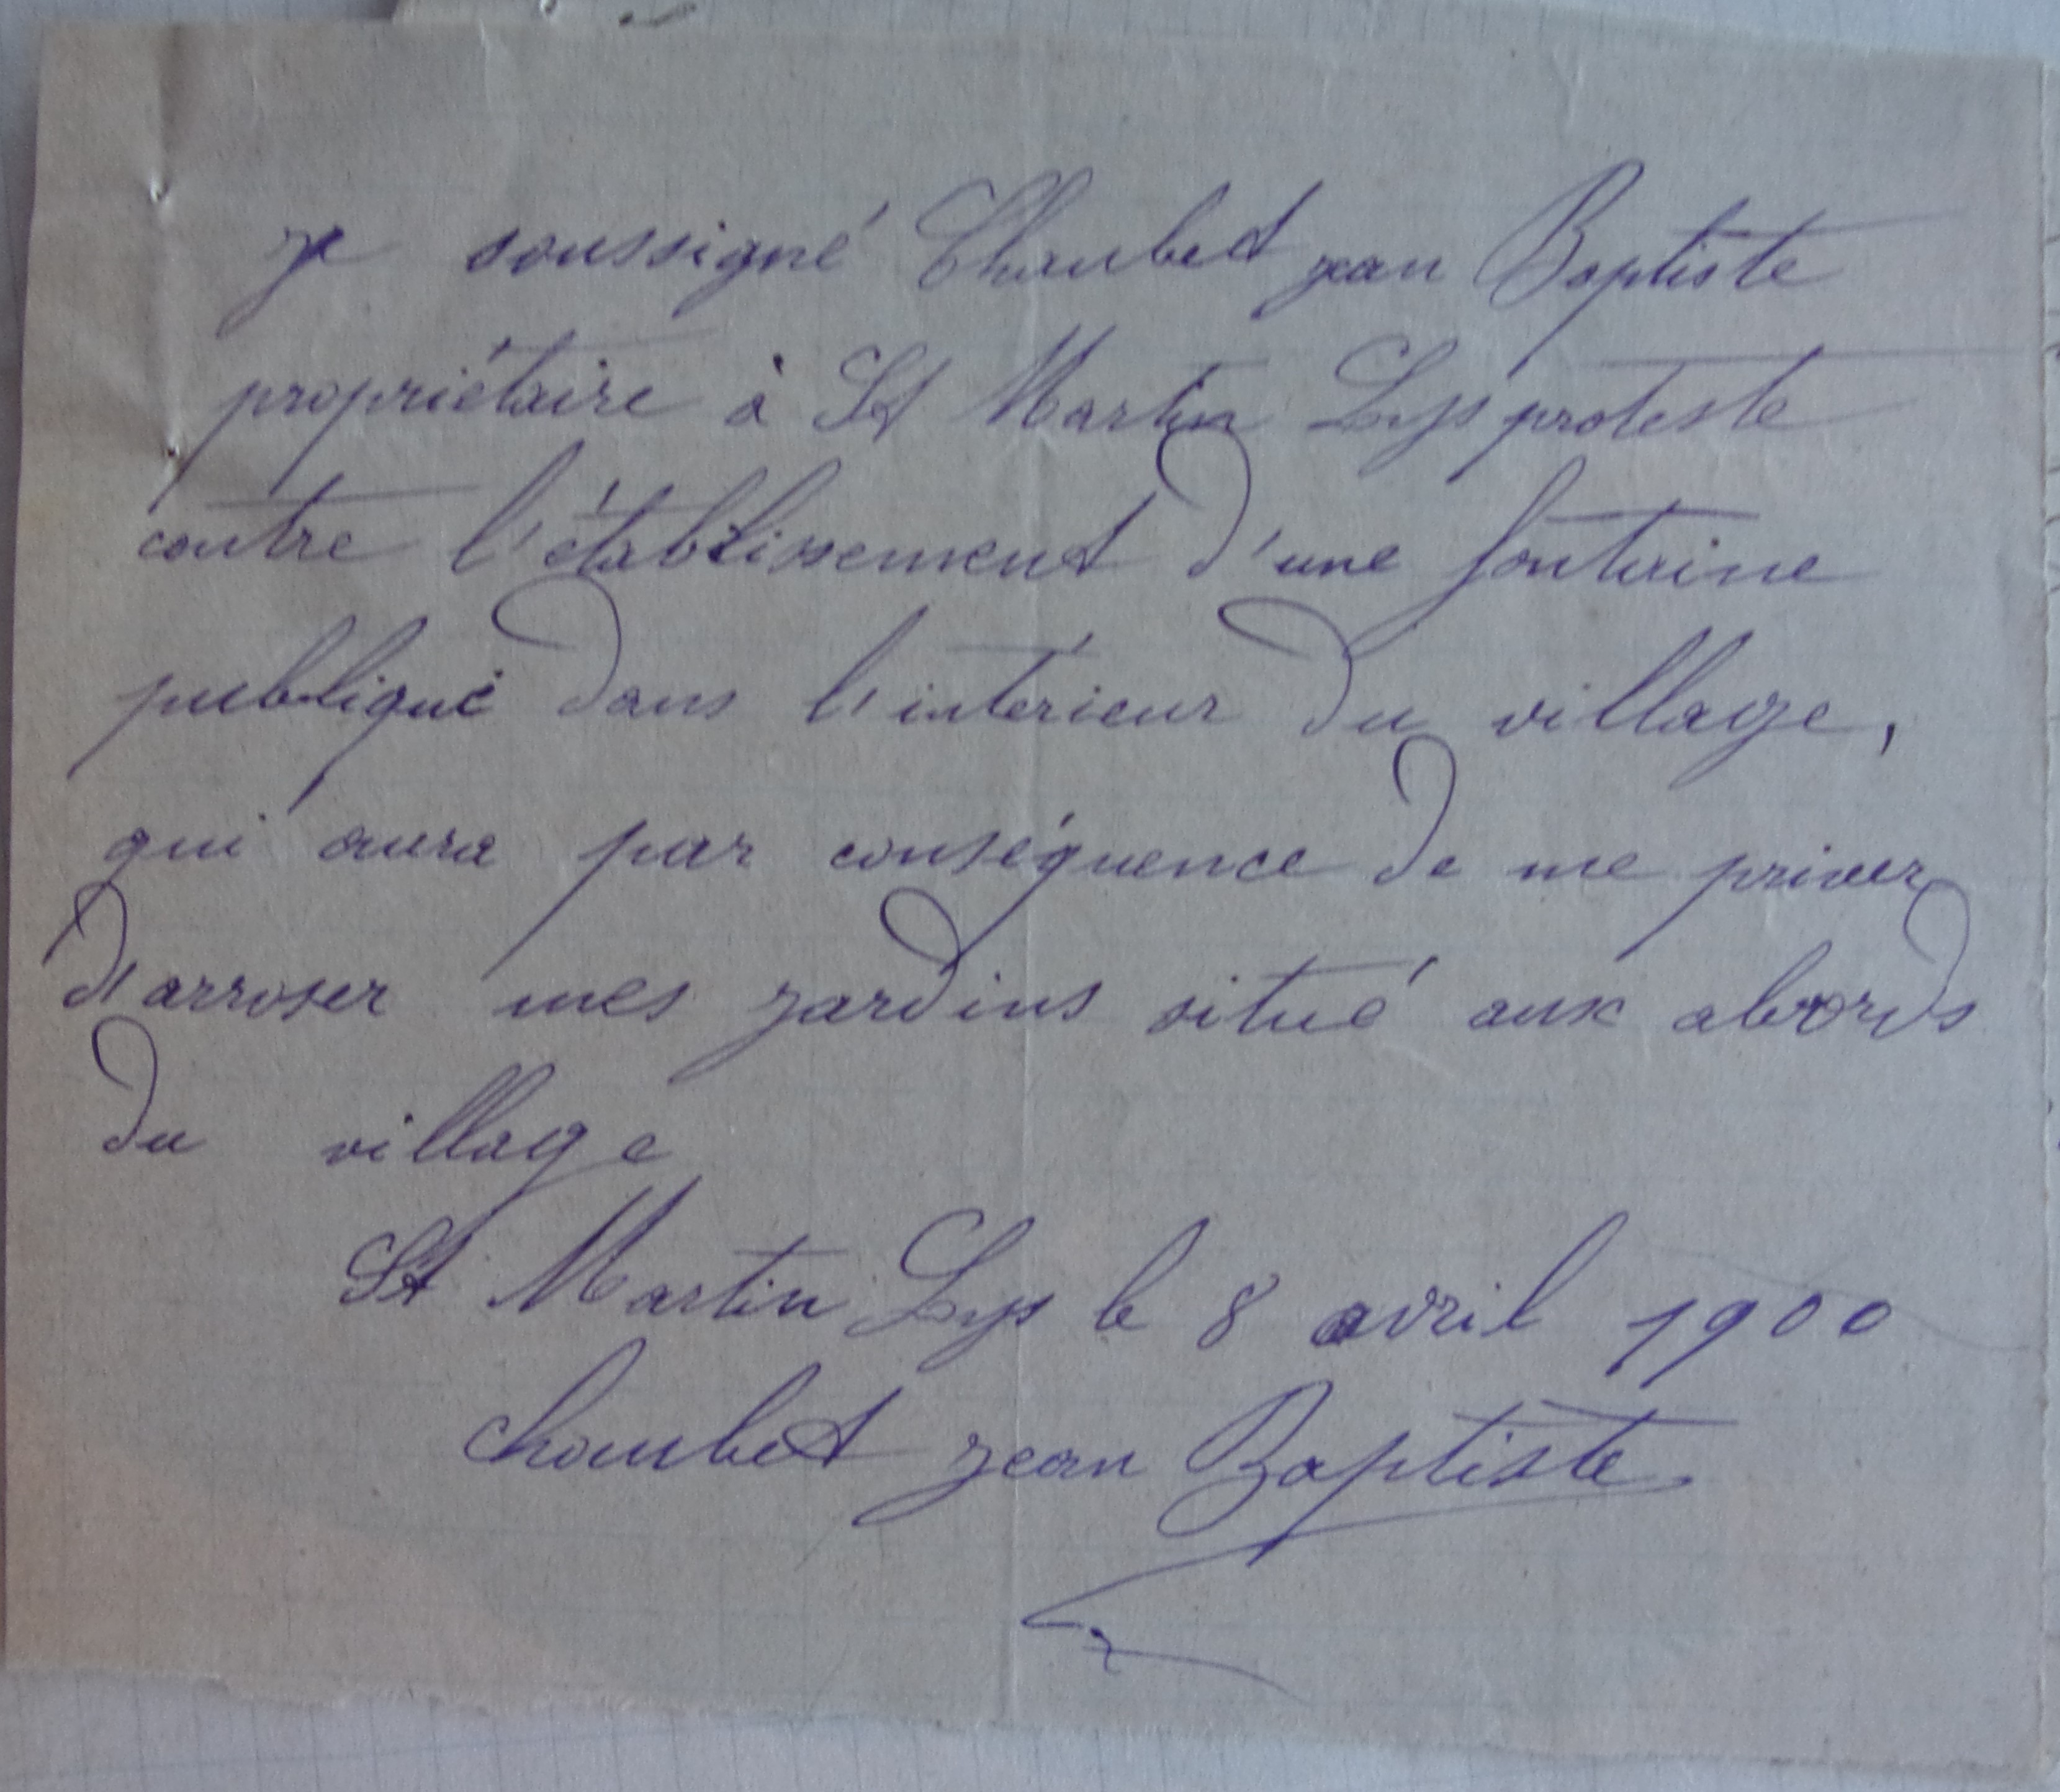 je soussigné Chaubet jean Baptiste
propriétaire à St Martin Lys proteste
contre l'établissement d'une fontaine
publique dans l'intérieur du village,
qui aura par conséquence de me priver
d'arroser mes jardins situé aux abords
du village
St Martin Lys le 8 avril 1900
Chaubet jean Baptiste